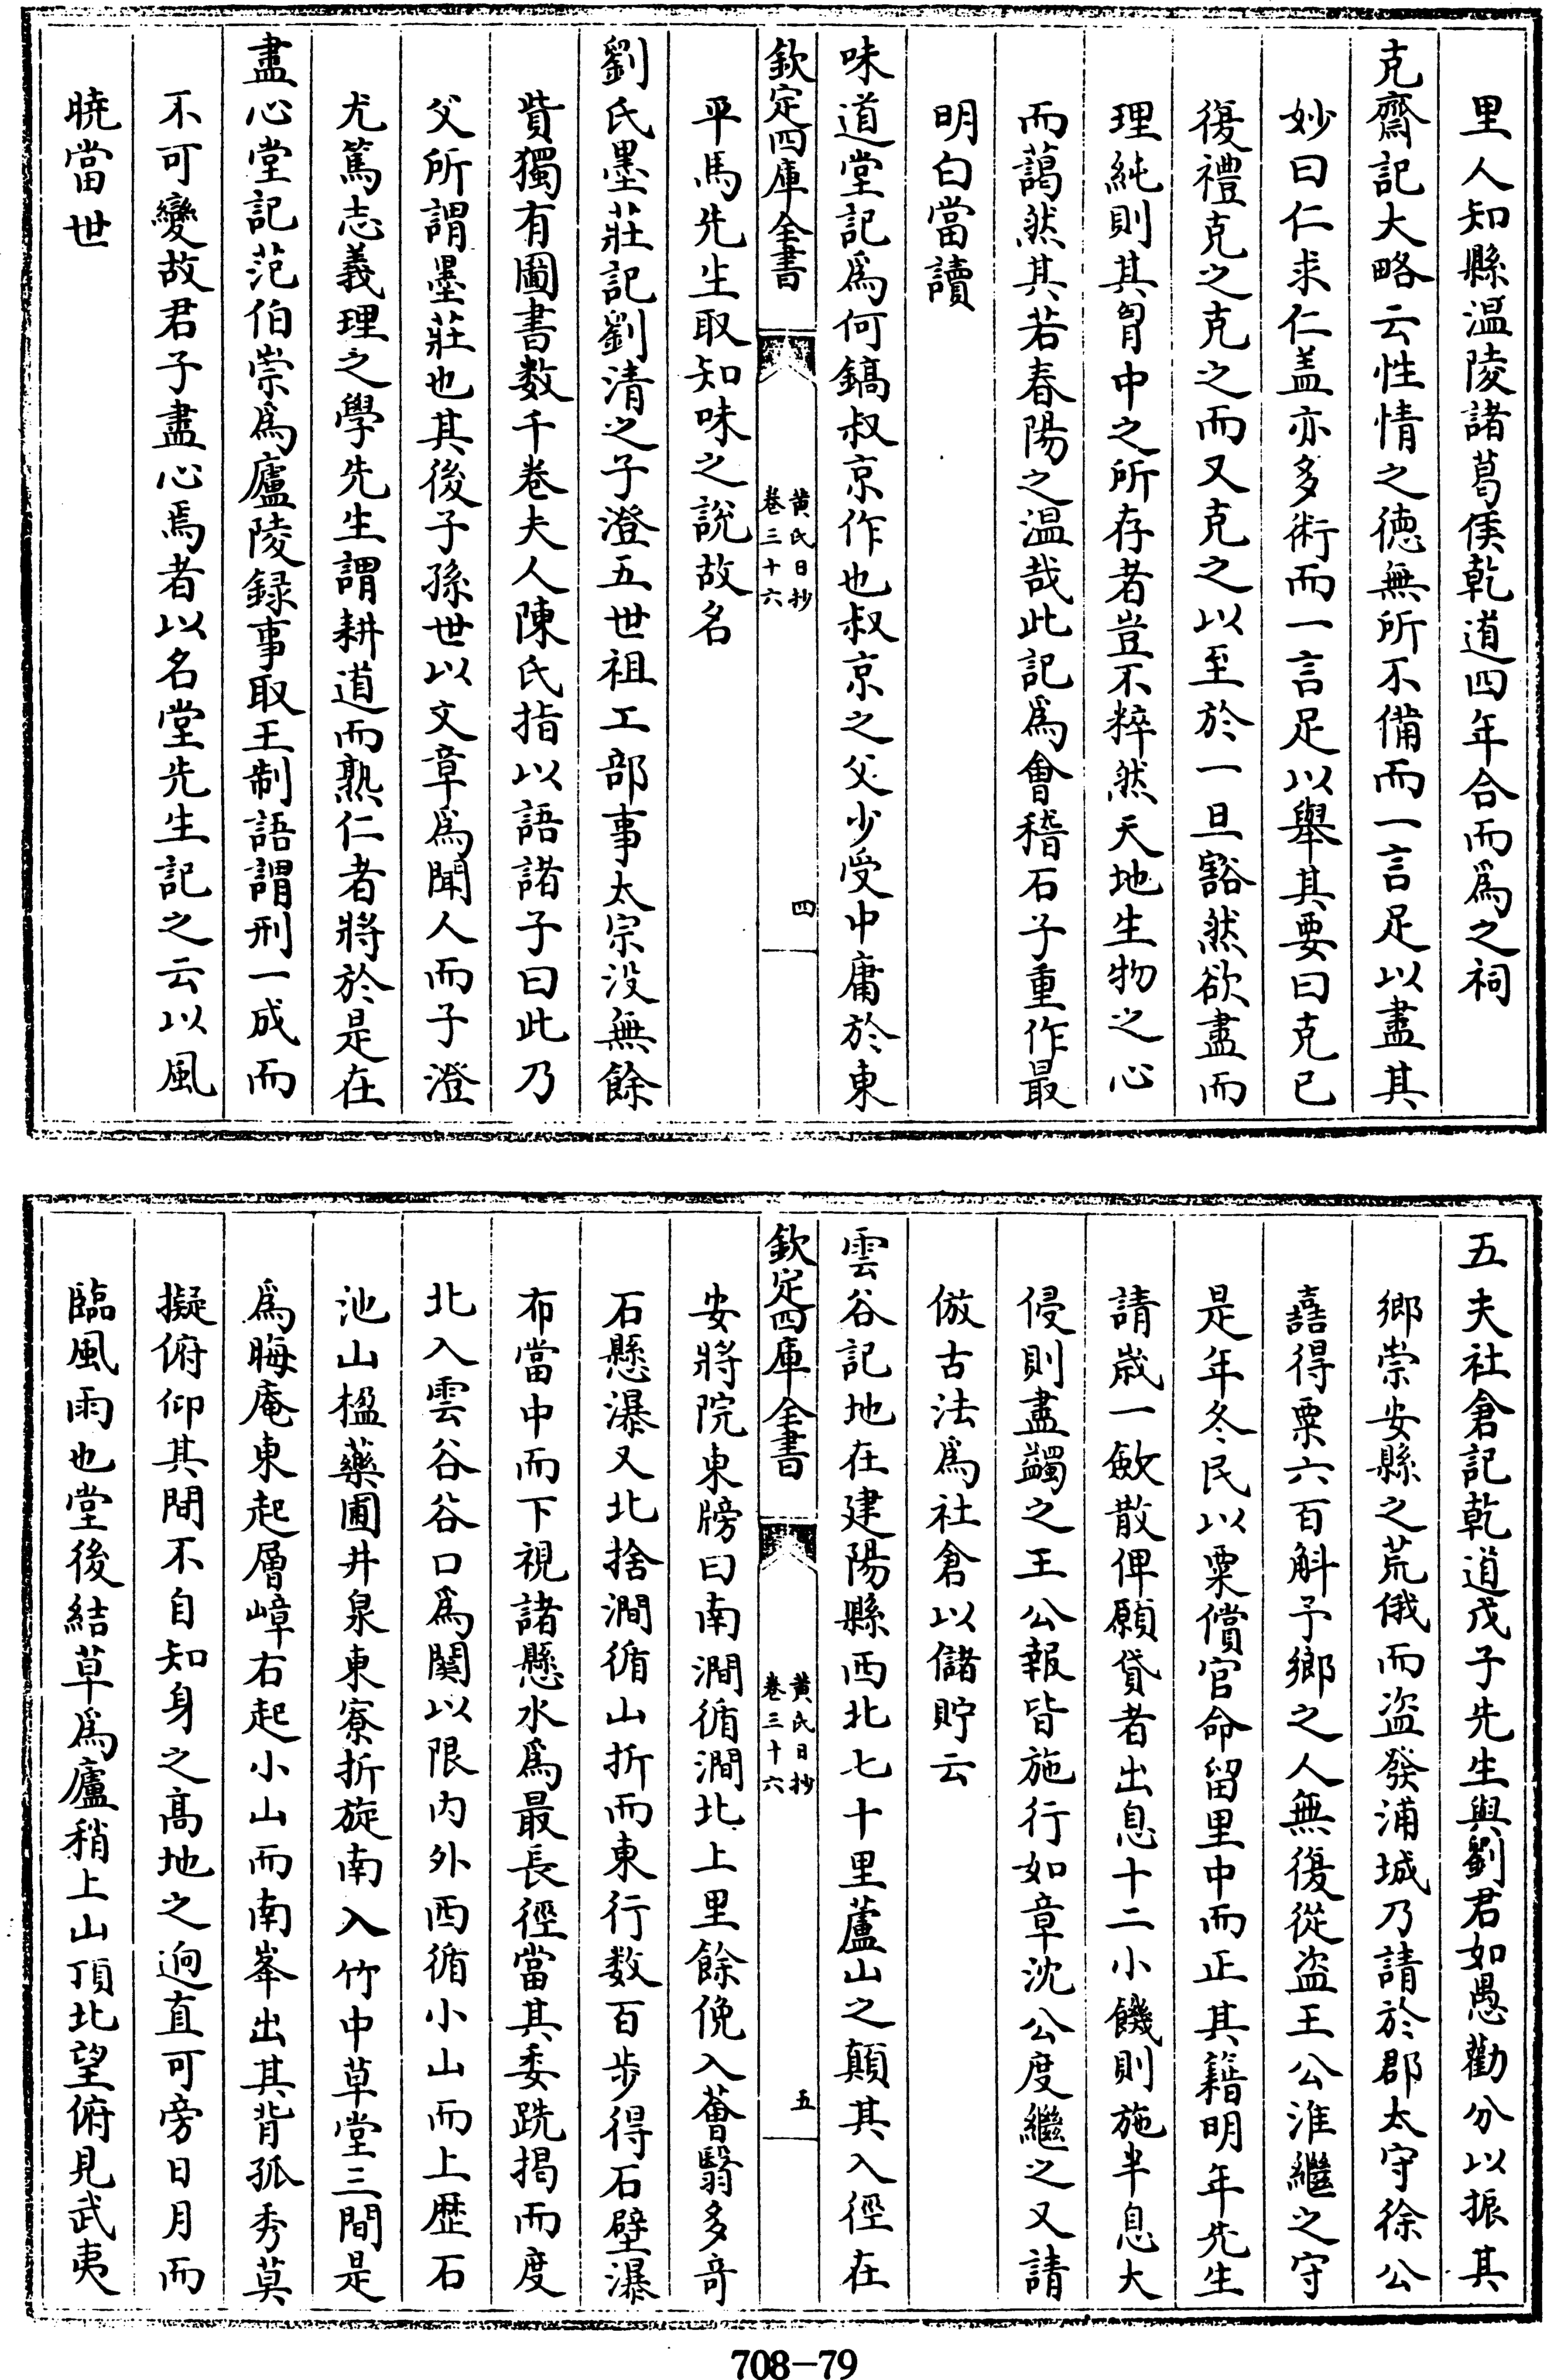 里人知縣温陵諸葛侯乾道四年合而爲之祠
克齋記大略云性情之徳無所不備而一言足以盡其
妙曰仁求仁盖亦多術而一言足以舉其要曰克已
復禮克之克之而又克之以至於一旦豁然欲盡而
理純則其胷中之所存者豈不粹然天地生物之心
而藹然其若春陽之温哉此記爲會稽石子重作最
明白當讀
味道堂記爲何鎬叔京作也叔京之父少受中庸於東
欽定四庫全書
黄氏日抄
卷三十六
四
平馬先生取知味之說故名
劉氏墨莊記劉清之子澄五世祖工部事太宗没無餘
貲獨有圖書数千卷夫人陳氏指以語諸子曰此乃
父所謂墨莊也其後子孫世以文章爲聞人而子澄
尤篤志義理之學先生謂耕道而熟仁者將於是在
盡心堂記范伯崇爲廬陵録事取王制語謂刑一成而
不可變故君子盡心焉者以名堂先生記之云以風
曉當世
五夫社倉記乾道戊子先生與劉君如愚勸分以振其
鄉崇安縣之荒俄而盗發浦城乃請於郡太守徐公
嚞得粟六百斛予鄉之人無復從盗王公淮繼之守
是年冬民以粟償官命留里中而正其籍明年先生
請歳一斂散俾願貸者出息十二小饑則施半息大
侵則盡蠲之王公報皆施行如章沈公度繼之又請
倣古法爲社倉以儲貯云
雲谷記地在建陽縣西北七十里蘆山之顛其入徑在
欽定四庫全書
黄氏日抄
卷三十六
五
安將院東牓曰南澗循澗北上里餘俛入薈翳多竒
石懸瀑又北捨澗循山折而東行数百步得石壁瀑
布當中而下視諸懸水爲最長徑當其委跣揭而度
北入雲谷谷口爲關以限内外西循小山而上歴石
池山楹藥圃井泉東寮折旋南入竹中草堂三間是
爲晦庵東起層嶂右起小山而南峯出其背孤秀莫
擬俯仰其間不自知身之髙地之逈直可旁日月而
臨風雨也堂後結草爲廬稍上山頂北望俯見武夷
708-79